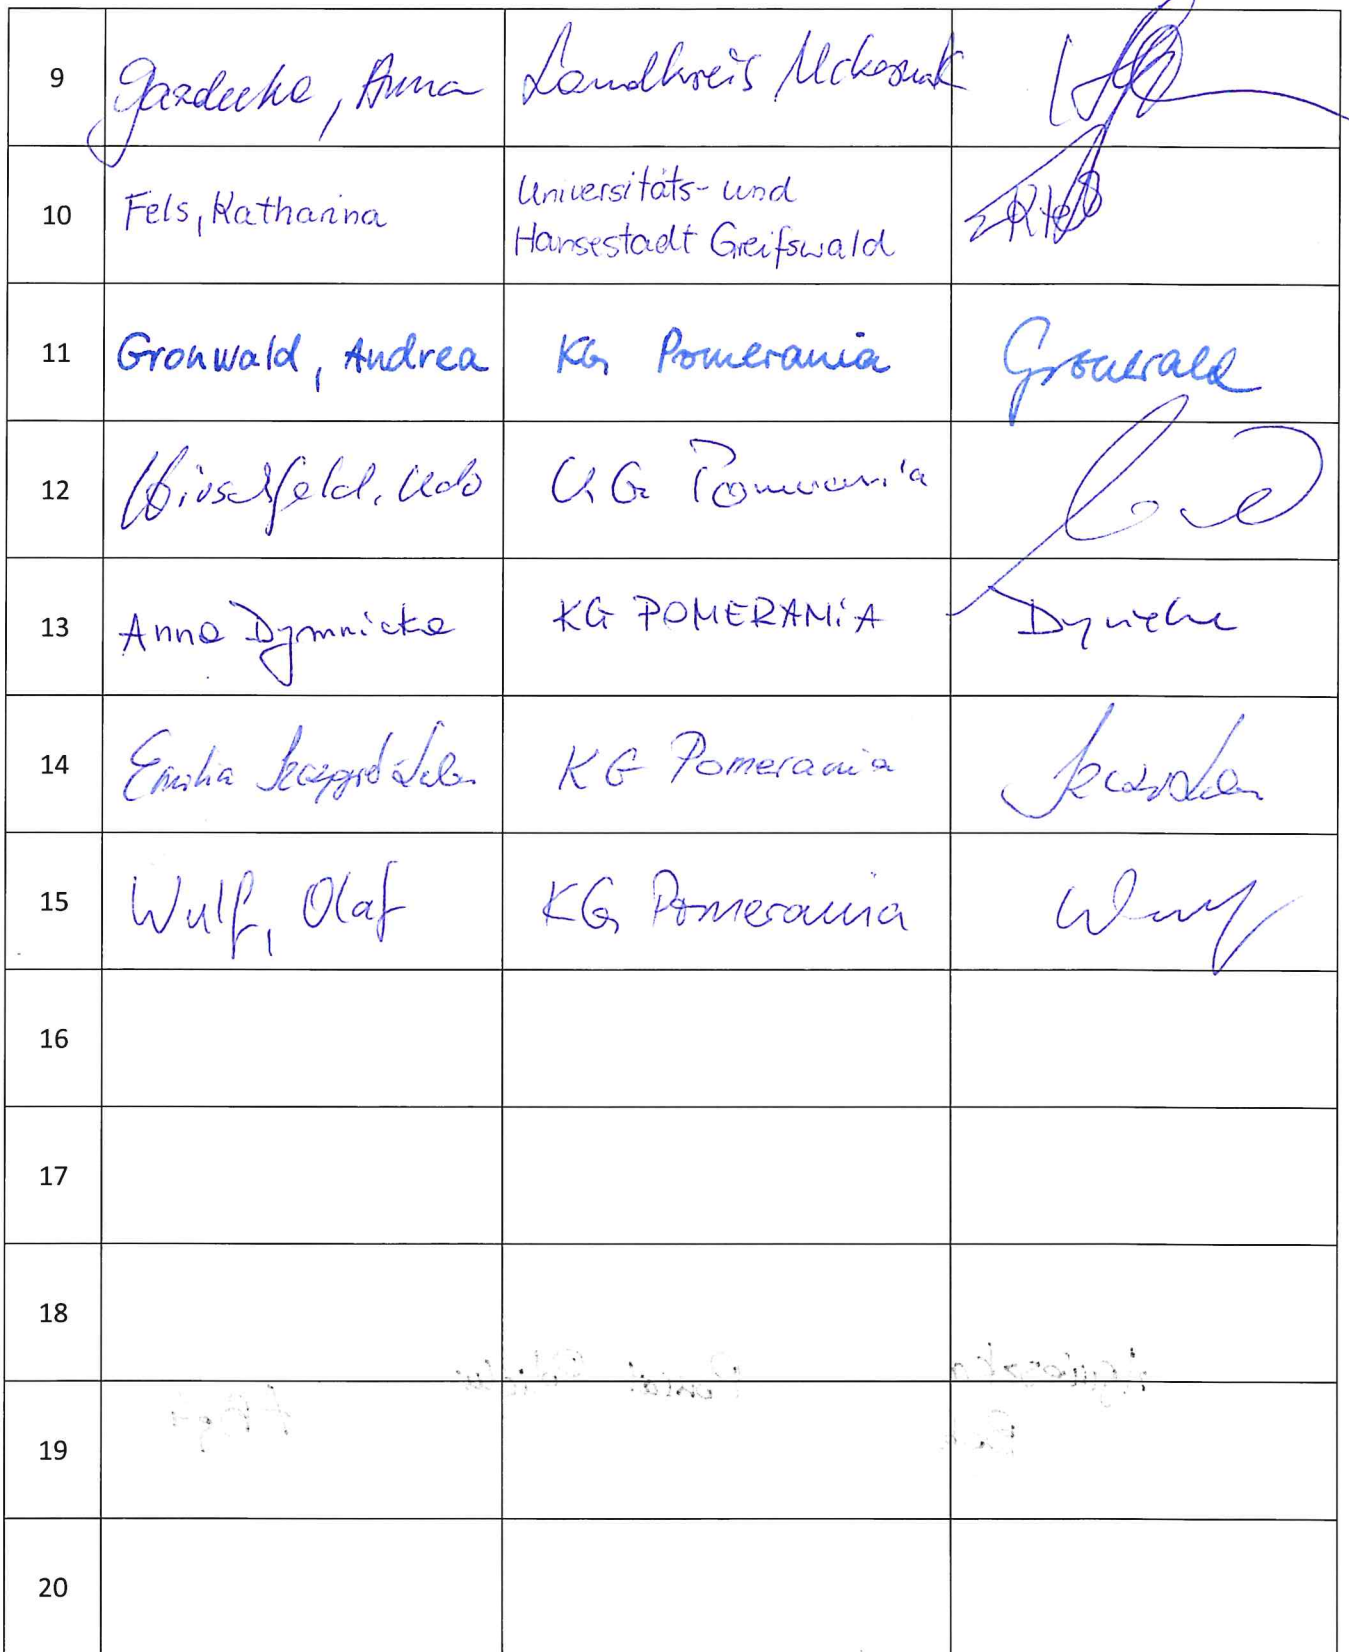 9 Gazdecka, Anna Landkreis Uckermark
10 Fels, Katharina Universitäts- und
Hansestadt Greifswald
11 Gronwald, Andrea KG Pomerania Gronwald
12 Hirschfeld, Udo KG Pomerania
13 Anna Dymnicka KG POMERANiA
14 Emilia KG Pomerania
15 Wulf, Olaf KG Pomerania Wulf
16
17
18
19
20